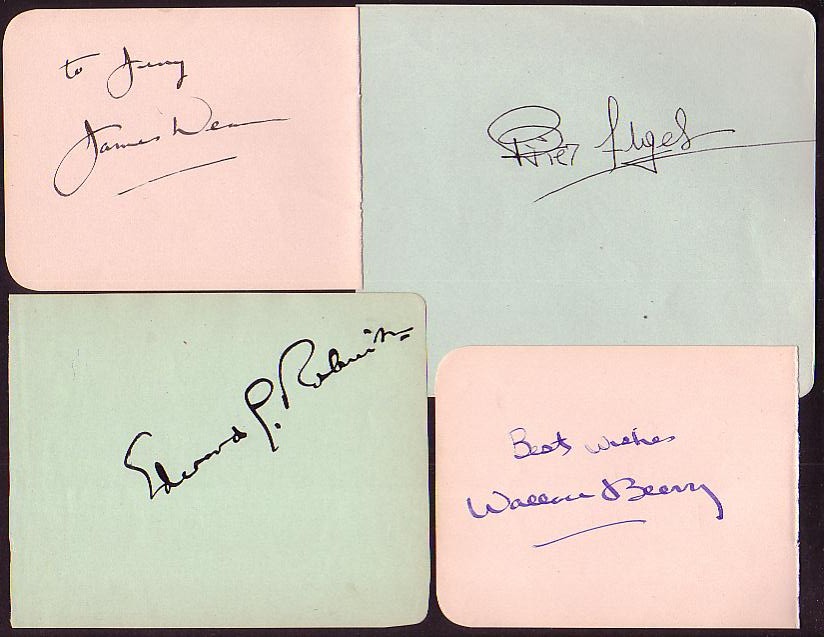 to Jerry
James Dean
Pier Angeli
Edward G. Robinson
Best wishes
Wallace Beery